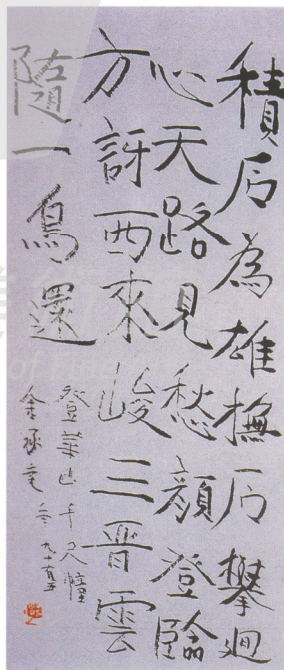 積石為雄撫石攀迴
心天路見愁顏登臨
方訝西來峻三晉雲
隨一鳥還
登華山千尺幢
余承堯 年九十五